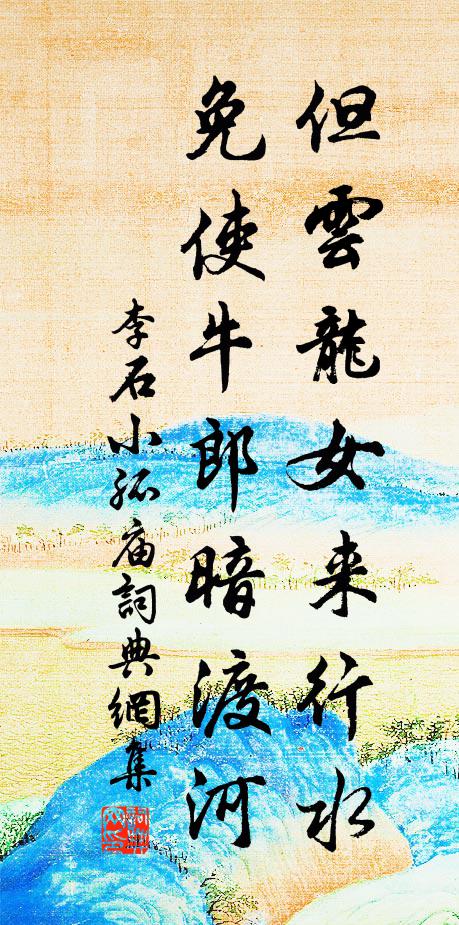 但雲龍女来行水
免使牛郎暗渡河
李石小孤庙詞典網集